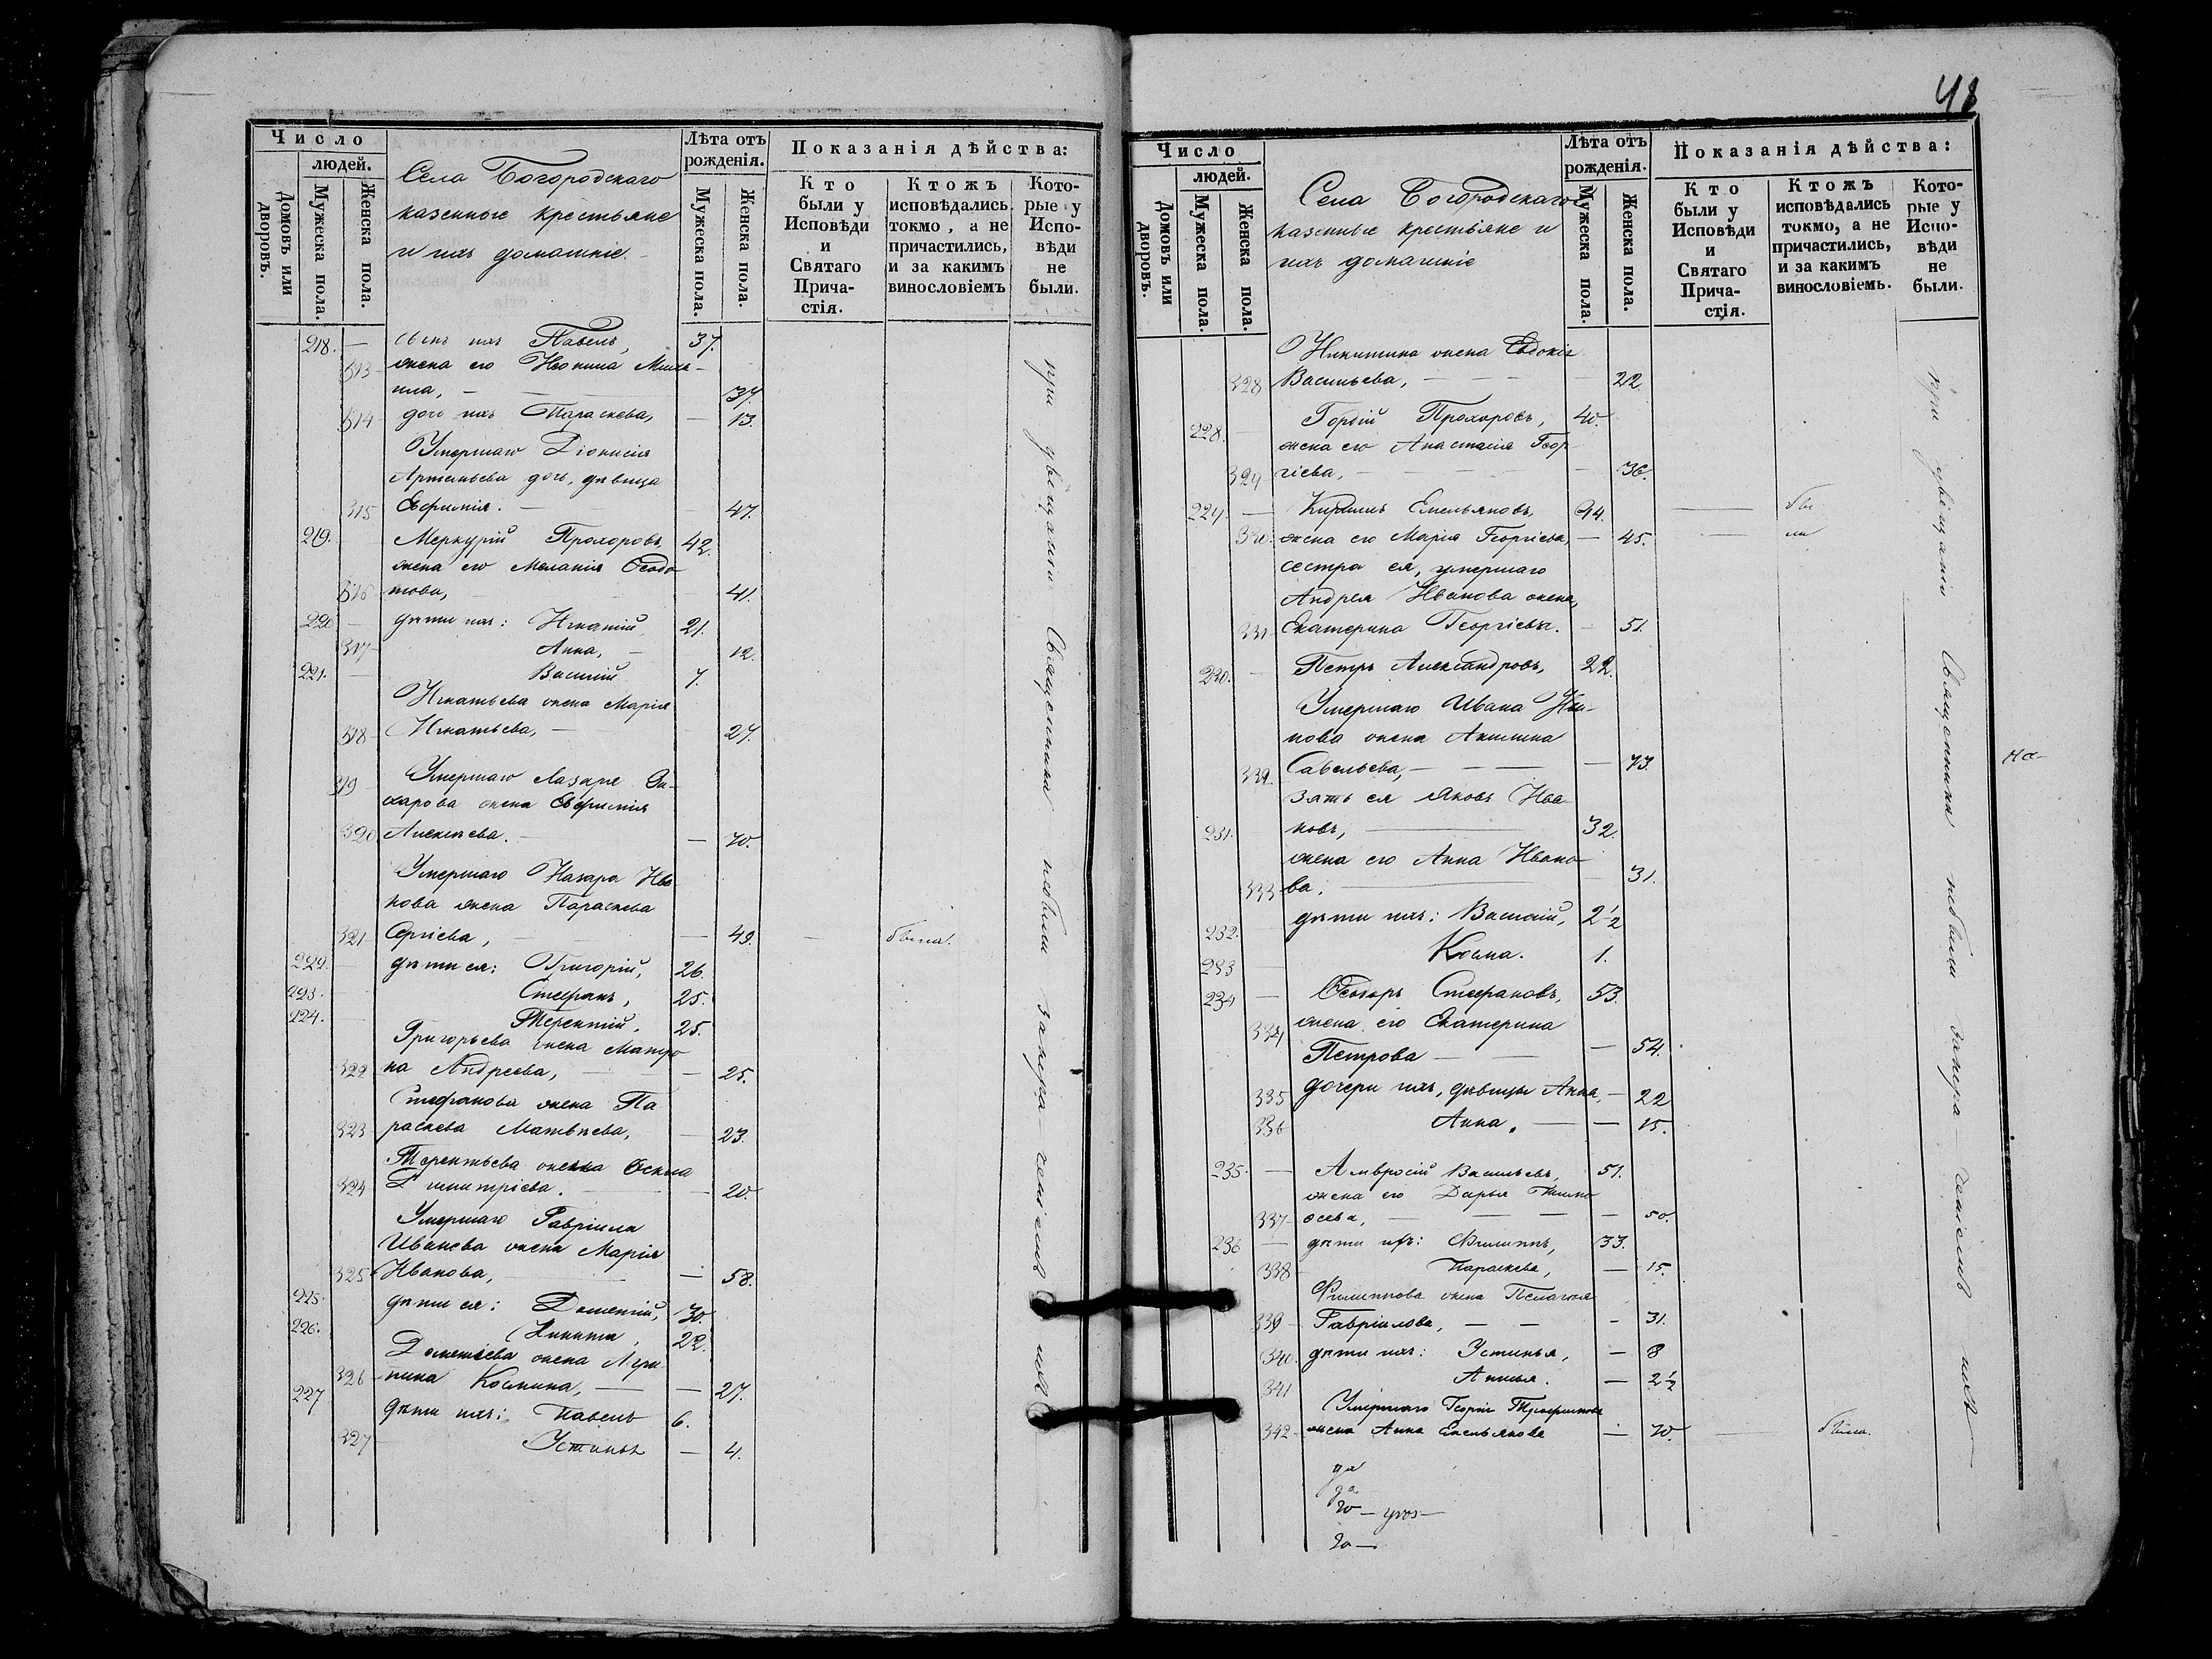 Число
людей.
Домовъ или дворовъ.
Мужеска пола.
Женска пола.
Села Богородскаго
казенные крестьяне
и ихъ домашніе.
Лѣта отъ рожденія.
Мужеска пола.
Женска пола.
Показанія дѣйства:
Кто были у Исповѣди и Святаго Прича-стія.
Ктожъ исповѣдались токмо, а не причастились, и за какимъ винословіемъ
Кото-рые у Испо-вѣди не были.
218. — сынъ ихъ Павелъ, 37.
313 жена его
37.
314 дочь ихъ Параскева, — 13.
Умершаго Діонисія
Артемьева дочь, дѣвица
315 Евфимія. — 47.
219. Меркурій Прохоровъ, 42.
жена его Меланія Ѳедо-
316 това, 41.
220 дѣти ихъ: Игнатій, 21.
317 Анна, — 12.
221. — Василій 7.
Игнатьева жена Марія
318 Игнатьева, — 27.
319 Умершаго Лазаря За-
харова жена Евфимія
320 Алексѣева. — 70.
Умершаго Назара Ива-
нова жена Параскева
321 Сергіева, — 49. — была.
222. дѣти ея: Григорій, 26.
223. Стефанъ, 25.
224. Терентій, 25.
Григорьева жена Матро-
322 на Андреева, — 25.
Стефанова жена Па-
323 раскева Матвѣева, — 23.
Терентьева жена Ѳекла
324 Димитріева. — 20.
Умершаго Гавріила
Иванова жена Марія
325 Иванова, — 58.
225. дѣти ея: Дометій, 30.
226. Никита, 22.
Дометіева жена Агри-
326 пина Космина, — 27.
227 дѣти ихъ: Павелъ 6.
327 Устинья — 4.
при увѣщаніи Священника небыли
48
Число
людей.
Домовъ или дворовъ.
Мужеска пола.
Женска пола.
Села Богородскаго
казенные крестьяне и
ихъ домашніе
Лѣта отъ рожденія.
Мужеска пола.
Женска пола.
Показанія дѣйства:
Кто были у Исповѣди и Святаго Прича-стія.
Ктожъ исповѣдались токмо, а не причастились, и за какимъ винословіемъ.
Кото-рые у Испо-вѣди не были.
Никитина жена Евдокія
328 Васильева, — 22.
228. Гордій Прохоровъ, 40.
жена его Анастасія Геор-
329 гіева, — 36.
229. — Кириллъ Емельяновъ, 44. — бы
330. жена его Марія Георгіева, — 45. — ли
сестра ея, умершаго
Андрея Иванова жена,
331 Екатерина Георгіева. — 51.
230. — Петръ Александровъ, 22.
Умершаго Ивана
нова жена Акилина
332. Савельева, — 73.
Зять ея Яковъ Ива-
231. новъ, — 32.
жена его Анна Ивано-
333 ва. — 31.
232. дѣти ихъ: Василій, 2½
233 — Косма. 1.
234 — Ѳеодоръ Стефановъ, 53.
334 жена его Екатерина
Петрова — 54.
335 дочери ихъ, дѣвицы Анна, — 22
336 Анна. — 15.
235. — Амвросій Васильевъ, 51.
жена его Дарья Тимо-
337 ѳеева, — 50.
236 — дѣти ихъ: Филиппъ, 33.
338 Параскева, — 15.
Филиппова жена Пелагія
339 Гавріилова, — 31.
340. дѣти ихъ: Устинья, — 8
341 — 2½
Умершаго Георгія
342 жена Анна Емельянова — 70. — была.
при увѣщаніи Священника небыли
на-